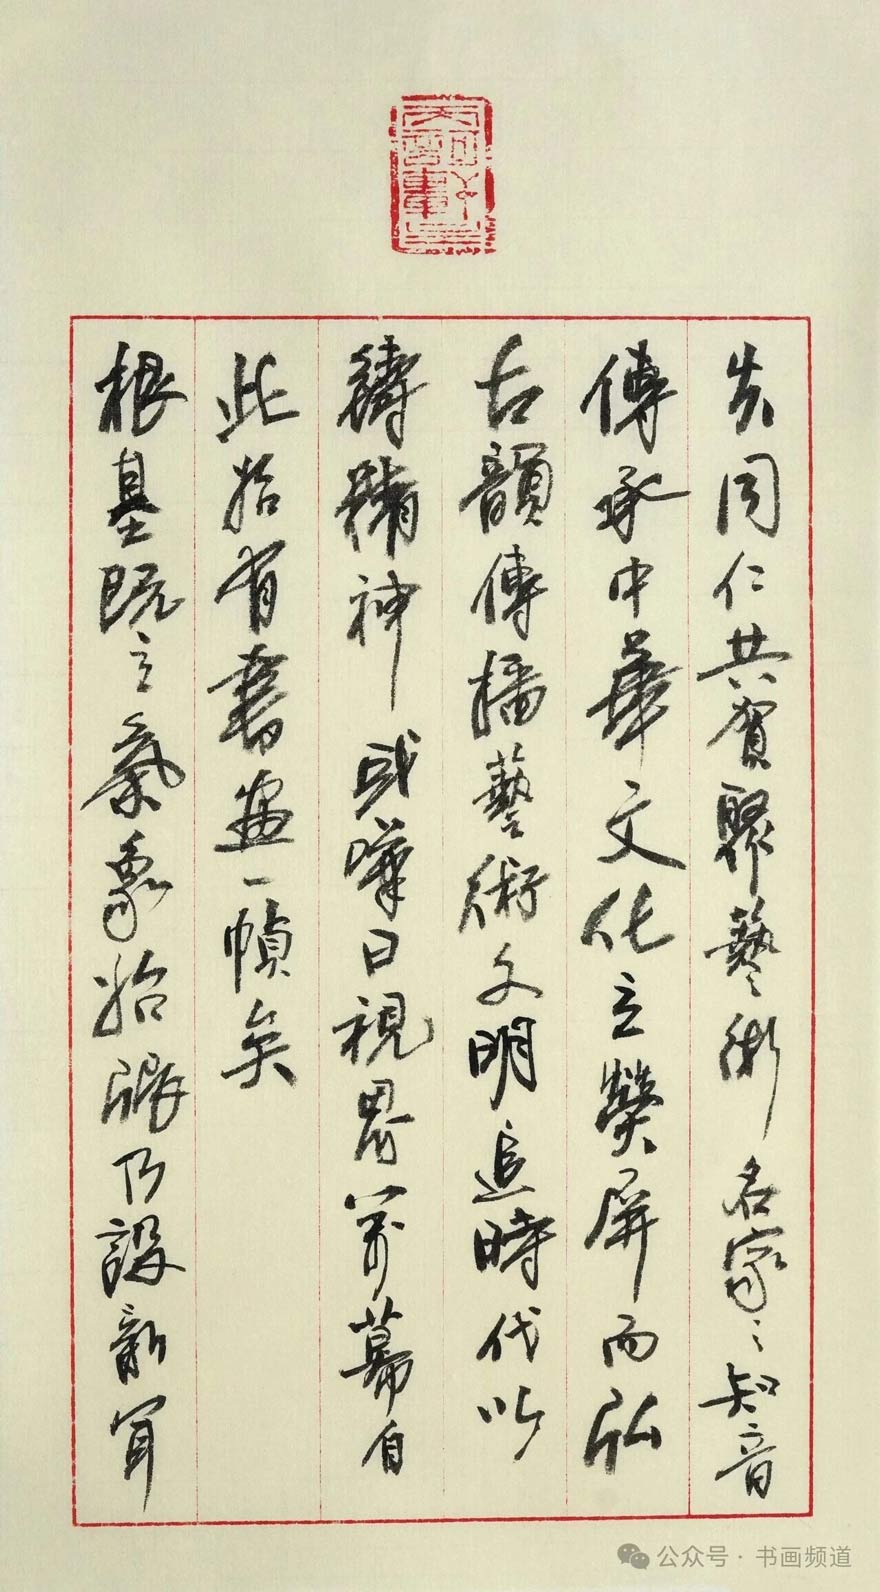 先同仁共賀聚藝術名家之知音
傳承中華文化立熒屏而弘
古韻傳播藝術文明追時代以
鑄精神或嘩曰視界萬幕自
此始有書畫一幀矣
根基既立氣象始張乃設新聞
公众号·书画频道